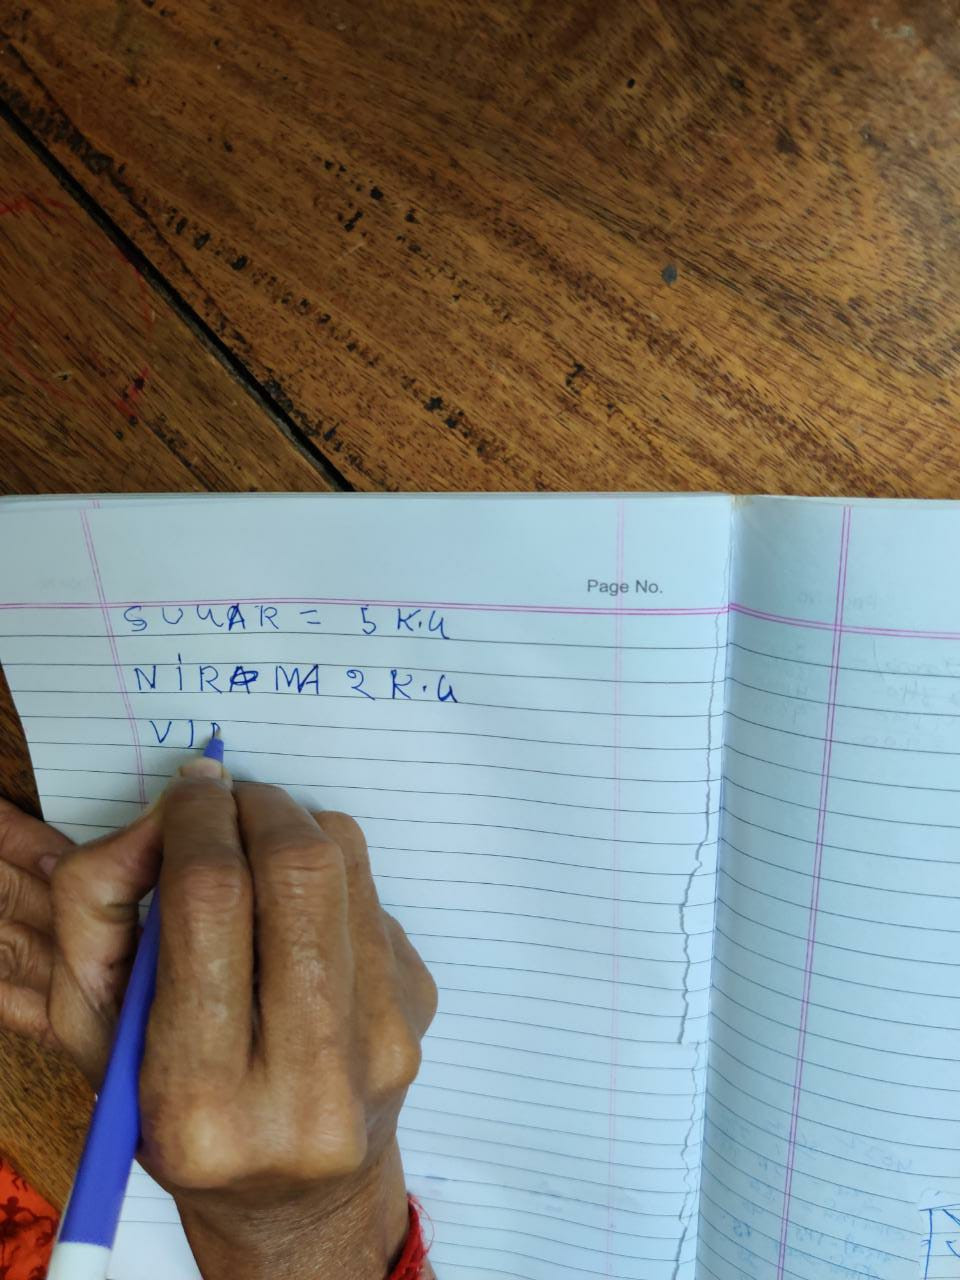 Page No.
SUGAR = 5 K.G
NIRAMA 2 K.G
VI